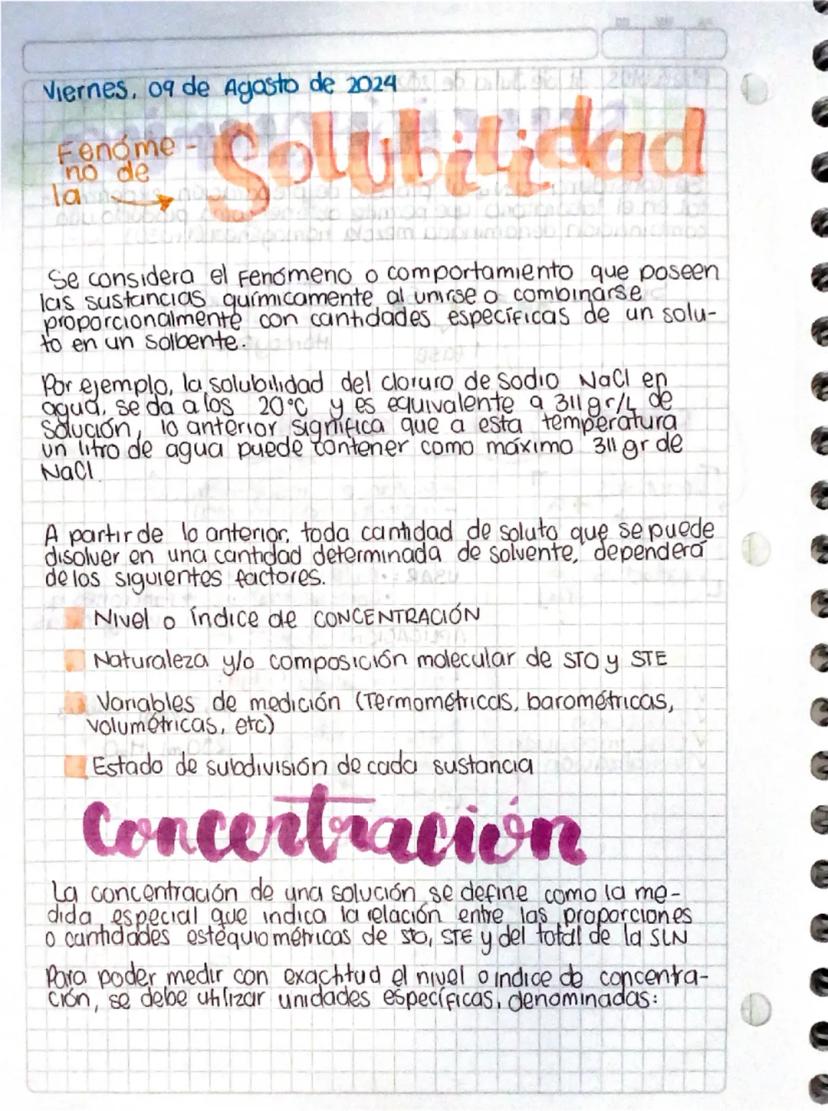 Viernes, 09 de Agosto de 2024
Fenóme-
no de
la
Solubilidad
Se considera el Fenómeno o comportamiento que poseen
las sustancias químicamente al unirse o combinarse
proporcionalmente con cantidades específicas de un solu-
to en un solbente.
Por ejemplo, la solubilidad del cloruro de Sodio NaCl en
agua, se da a los 20°C y es equivalente a 311gr/L de
Solución, lo anterior significa que a esta temperatura
un litro de agua puede contener como máximo 311 gr de
NaCl
A partir de lo anterior, toda cantidad de soluto que se puede
disolver en una cantidad determinada de solvente, dependerá
de los siguientes factores.
Nivel o índice de CONCENTRACIÓN
Naturaleza y/o composición molecular de STO y STE
Variables de medición (Termométricas, barométricas,
volumétricas, etc)
Estado de subdivisión de cada sustancia
Concentración
La concentración de una solución se define como la me-
dida especial que indica la relación entre las proporciones
o cantidades estequiométricas de sto, STE y del total de la SLN
Para poder medir con exactitud el nivel o indice de concentra-
ción, se debe utilizar unidades específicas, denominadas: